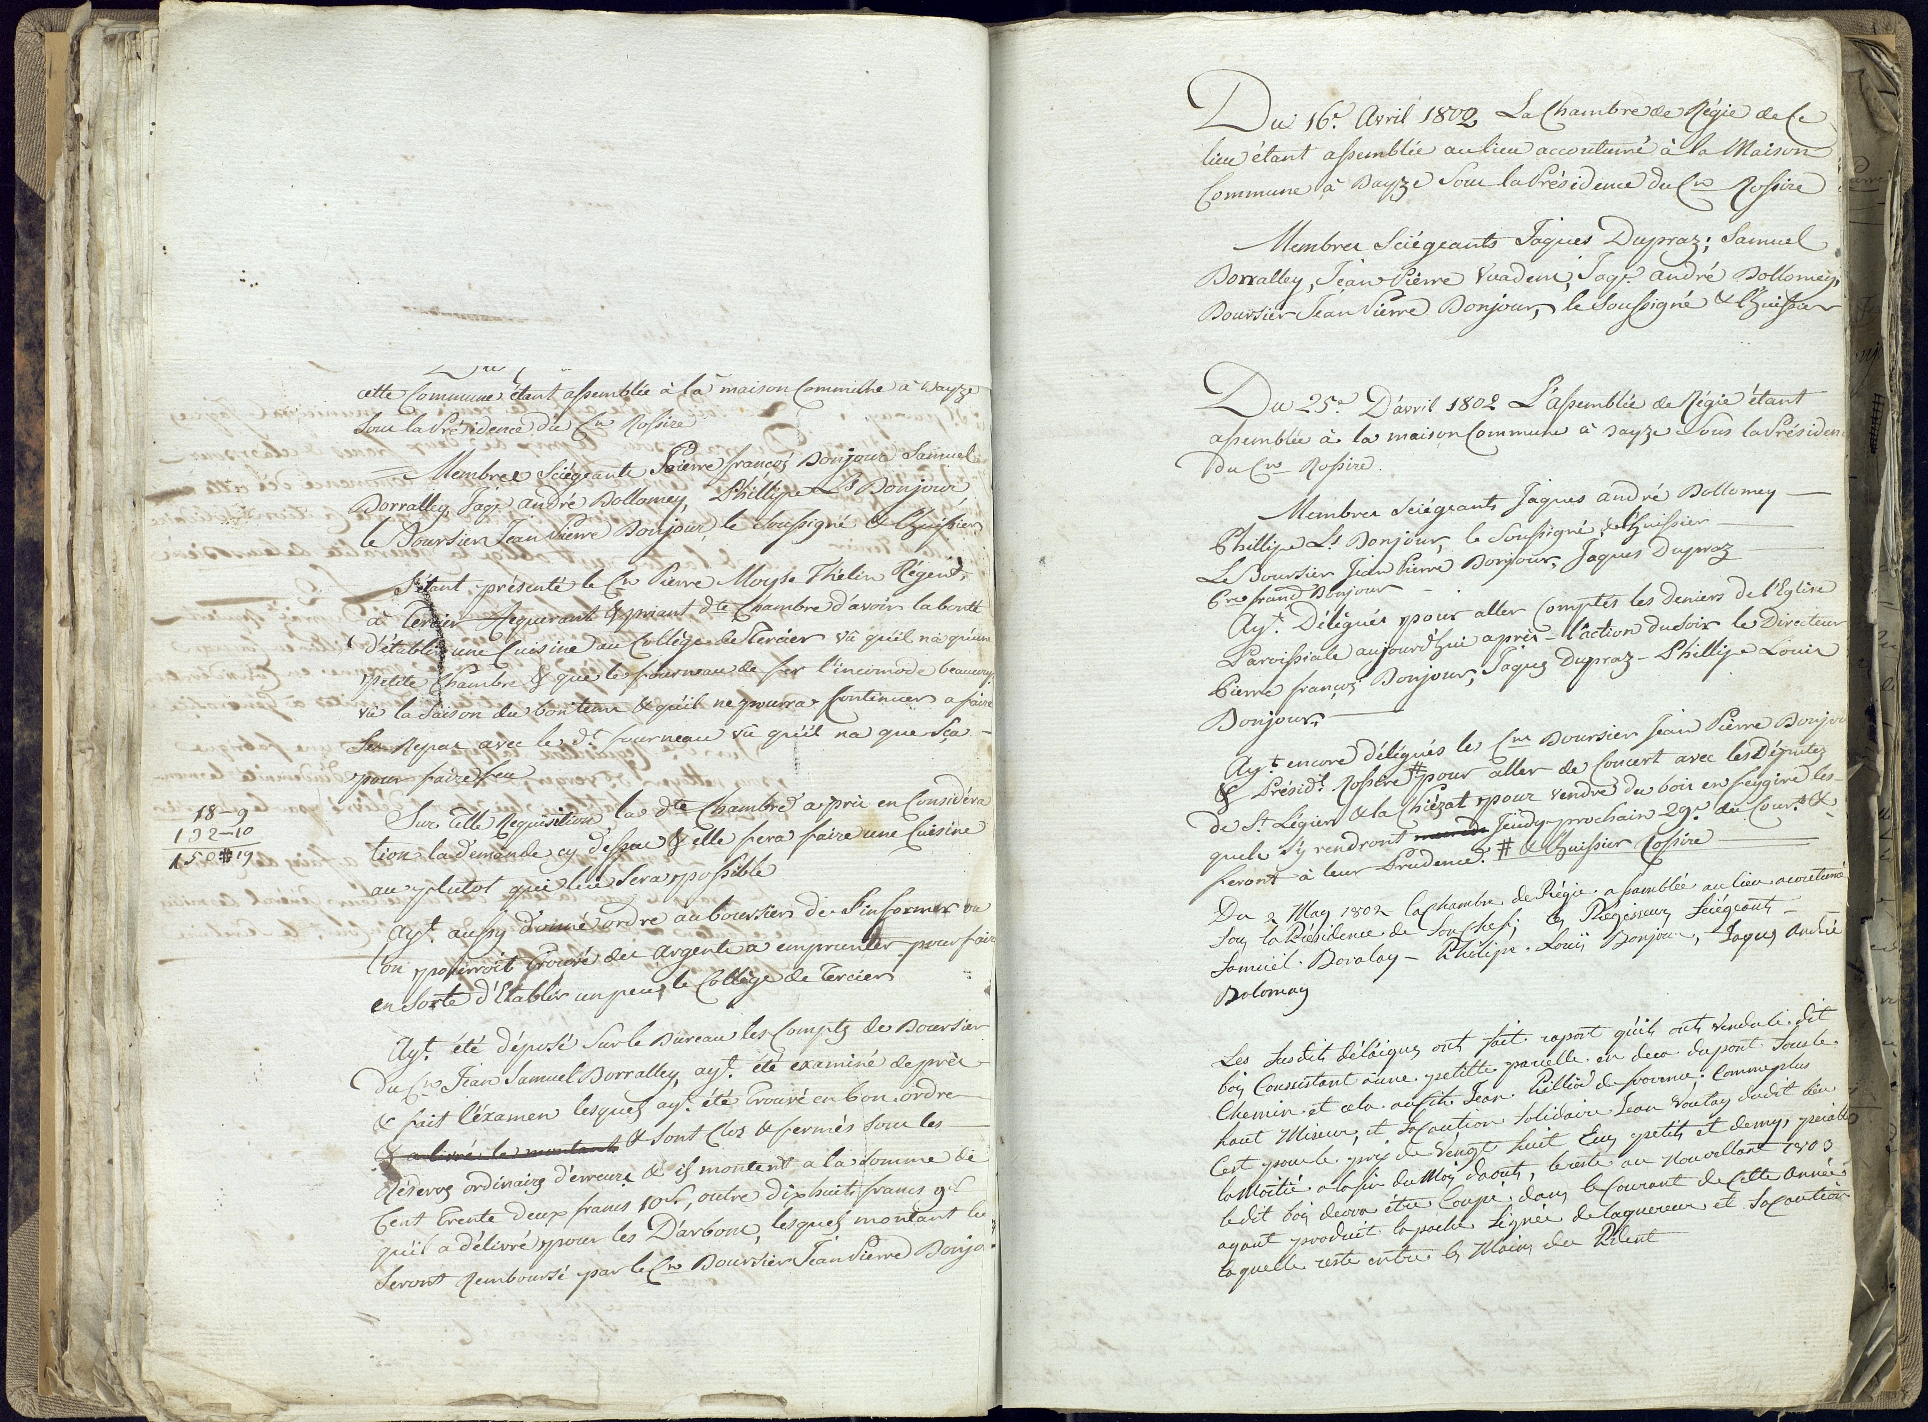 cette Commune étant assemblée à la maison Commune à Bayze
sous la Présidence du Cn Rossire
Membres Sciégeants Pierre françois Bonjour Samuel
Borralley, Jaqs andré Bollomey, Phillipe Ls Bonjour
le Boursier Jean Pierre Bonjour, le soussigné & l'huissier
S'étant présenté le Cn Pierre Moyse Thélin Régent
à Tercier Requerant & priant dte Chambre d'avoir la bonté
d'établir une Cuisine au Collège de Tercier vû qu'il na qu'une
petite Chambre & que le fourneau de fer l'incomode beaucoup
vû la Saison du bon tems & qu'il ne pourra Continuer a faire
Ses Repas avec le dt fourneau vû qu'il na que Sça
pour faire feu
18-9
132-10
150#19
Sur telle Requisition la dte Chambre a pris en Considéra
tion la demande cy dessus & elle fera faire une Cuisine
au plutot que lui sera possible
Ayt aussy donné ordre au boursier de S'informer ou
l'on pourroit trouvé des argents a emprunter pour faire
en Sorte d'Etablir un peu le Collège de Tercier
Ayt été déposé Sur le Bureau les Compts de Boursier
du Cn Jean Samuel Borralley, ayt été examiné de près
& fait l'éxamen lesquels ayt été trouvé en bon ordre
& a livré le montant & sont Clos & fermés sous les
Réserves ordinaires d'erreurs & ils montent a la somme de
Cent trente deux francs 10 s, outre dixhuit francs 9 s
qu'il a délivré pour les D'arbonc, lesquels montant lu
Seront Remboursé par le Cn Boursier Jean Pierre Bonjo
Du 16e Avril 1802 La Chambre de Régie de Ce
lieu étant assemblée au lieu accoutumé à la Maison
Commune à Bayze Sous la Présidence du Cn Rossire
Membres Sciégeants Jaques Dupraz; Samuel
Borralley, Jean Pierre Vuadens, Jaqs andré Bollomey,
Boursier Jean Pierre Bonjour, le soussigné & l'huissier
Du 25e D'avril 1802 L'assemblée de Régie étant
assemblée à la maison Commune à Bayze sous la Présiden
du Cn Rossire.
Membres Sciégeants Jaques andré Bollomey
Phillipe Ls Bonjour, le Soussigné, & l'huissier
Le Boursier Jean Pierre Bonjour, Jaques Dupraz
Pre francs Bonjour
Ayt Délégués pour aller Comptés les deniers de l'Eglise
Paroissiale aujourd'hui après l'action du soir le Directeur
Pierre françois Bonjour, Jaques Dupraz Phillipe Louis
Bonjour.
Ayt encore délégués le Cn Boursier Jean Pierre Bonjou
& Présidt Rossere # pour aller de Concert avec les Députez
de St Légier & la Chiézat pour vendre du bois en feygire les-
quels s'y rendront Jeudy prochain 29e du Court &
feront à leur Prudence. # & l'huissier Cossire
Du 2 May 1802 la Chambre de Régie assamblée au lieu acoutumé
Sous la Présidence de Son Chef; les Régisseurs Sciégeants
Samuel Boralay - Philipe Louis Bonjour, Jaques André
Bolomay
Les Susdits déléigues ont fait raport qu'ils ont vendu le dit
bois Consistant à une petitte parcelle en deca du pont Sous le
Chemin et cela au Cit. Jean Pilliod de comme plus
haut Miseur, et Sa Caution Solidaire Jean Voutay dudit lieu
C'est pour le prix de vengt huit Ecus petits et demy, payable
la Moitié a la fin du Mois daout, le reste au Nouvellant 1803
le dit bois devra être Coupé dans le Courant de Cette Année
ayant produit la pache Signée de laquereur et Sa Caution
laquelle reste entre les Mains du Pdent